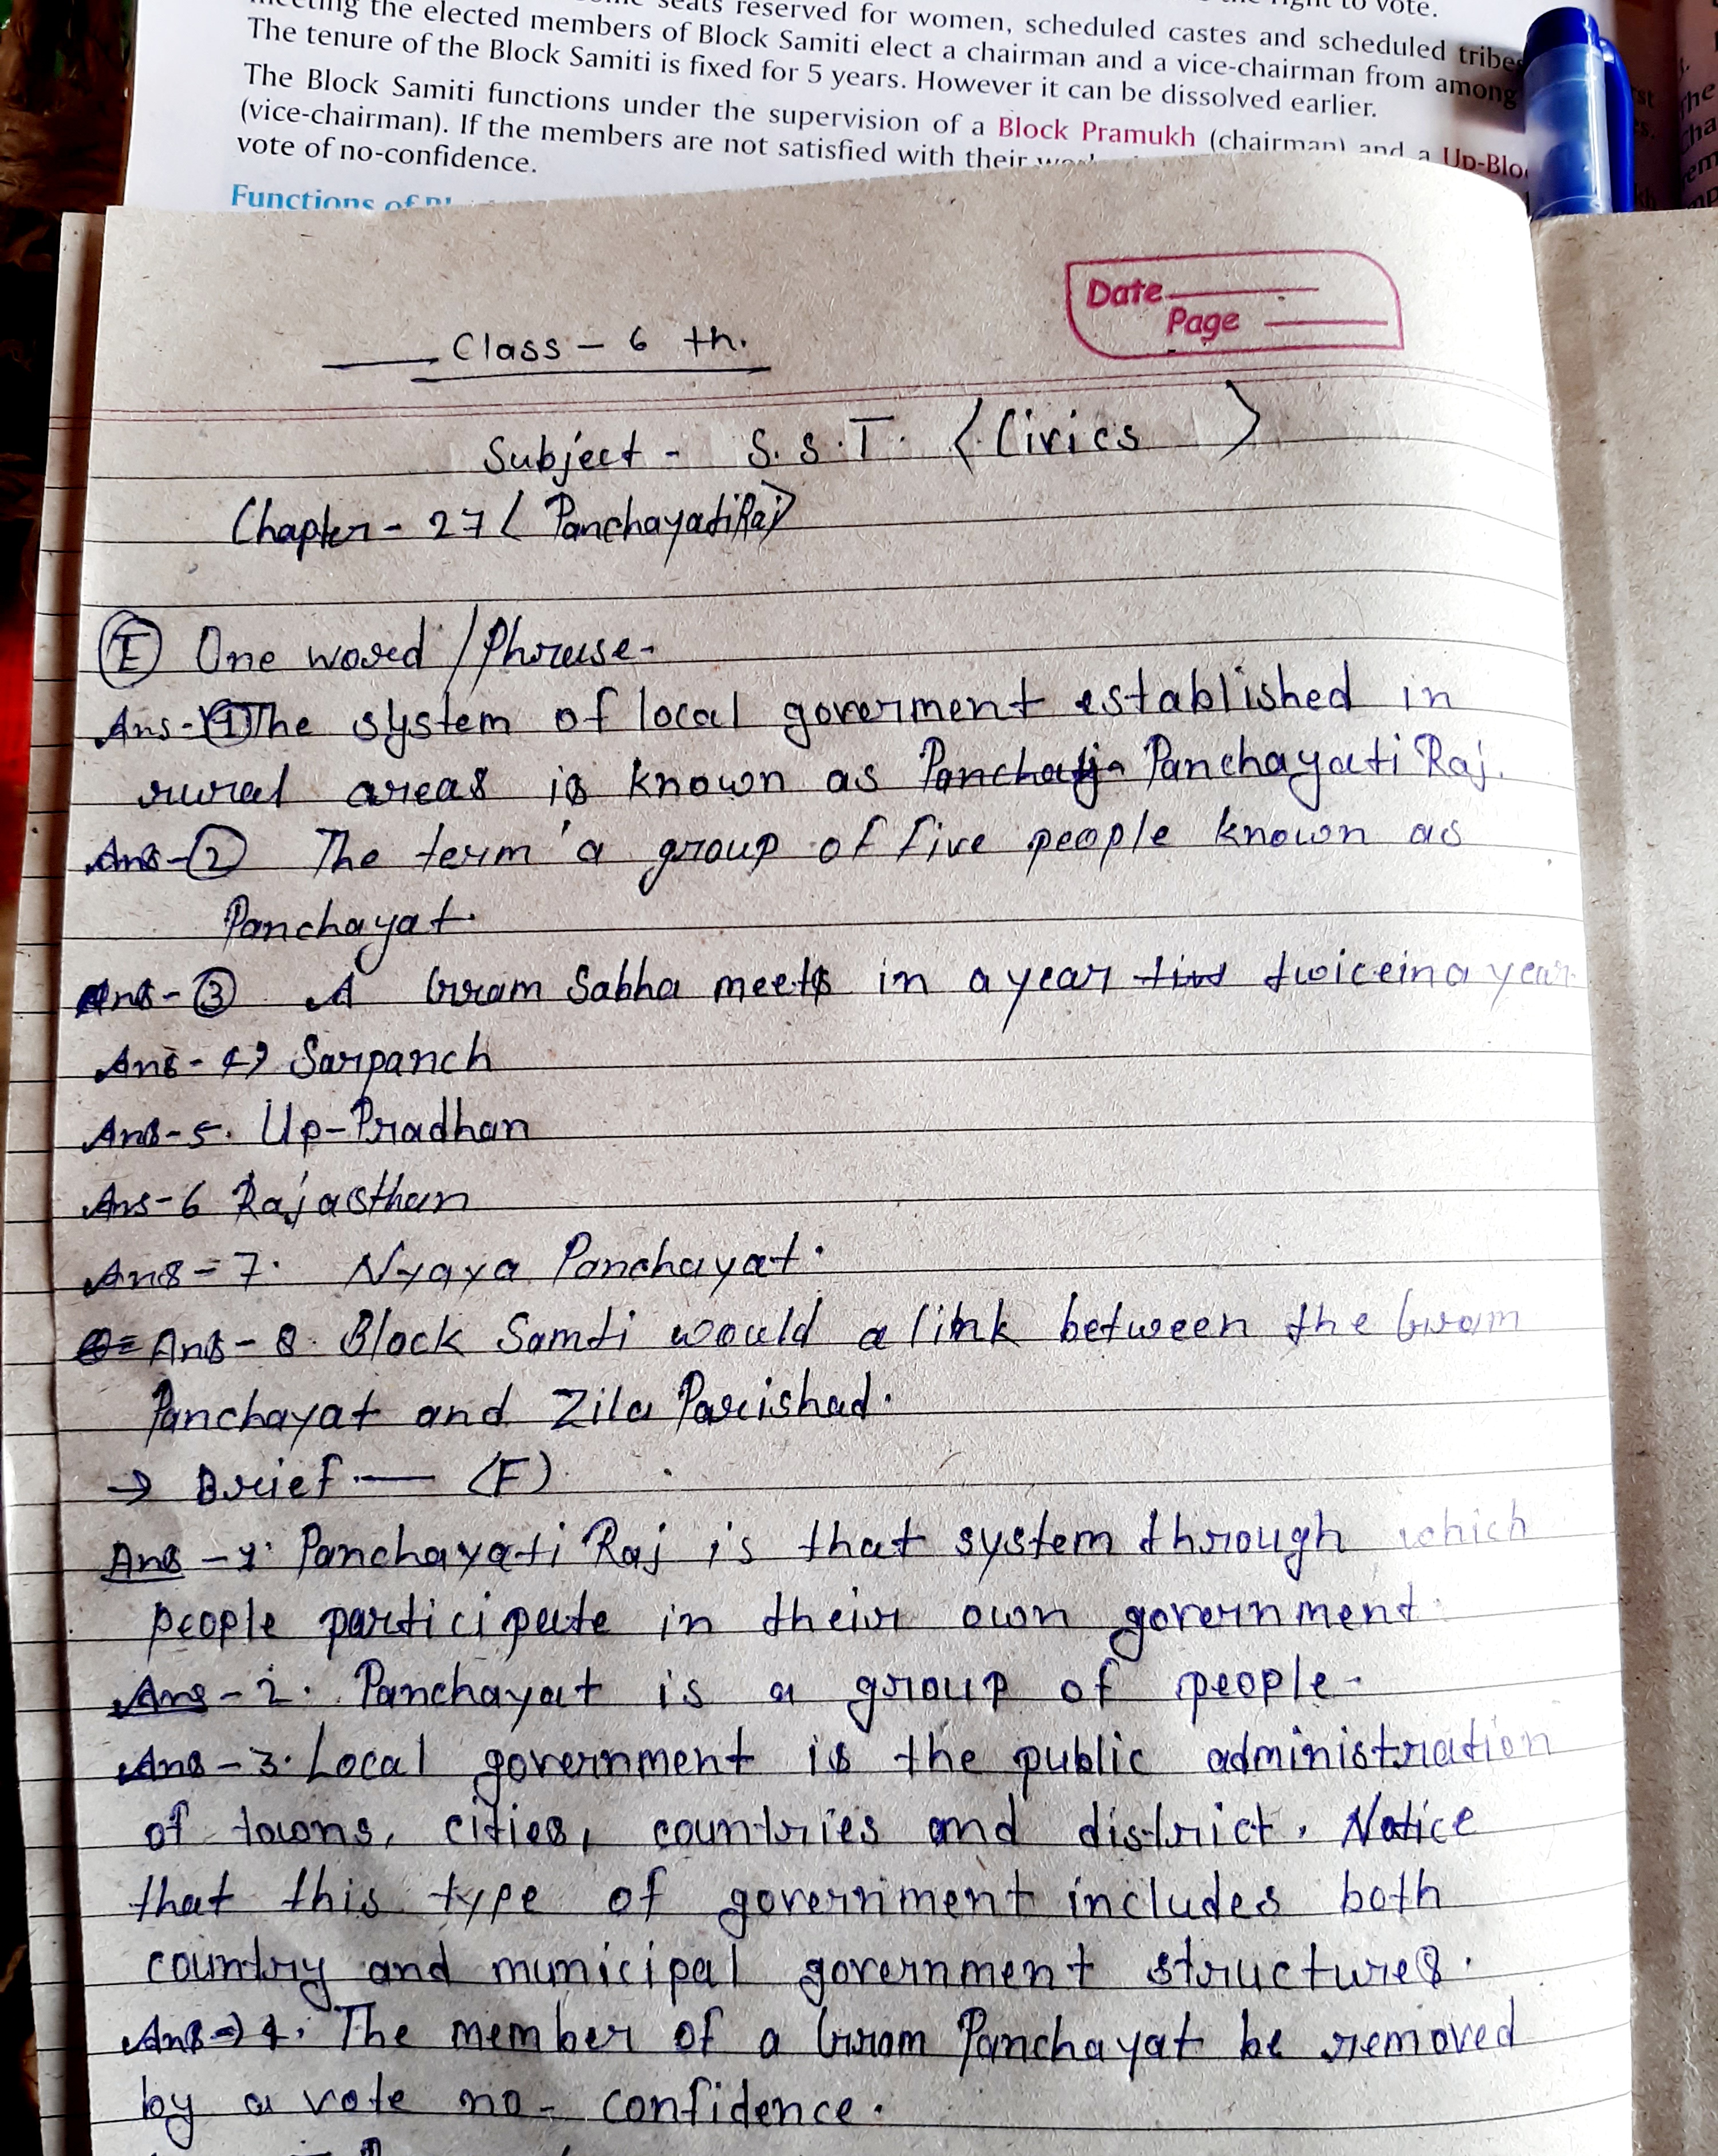 seats reserved for women, scheduled castes and scheduled tribes
meeting the elected members of Block Samiti elect a chairman and a vice-chairman from among
The tenure of the Block Samiti is fixed for 5 years. However it can be dissolved earlier.
The Block Samiti functions under the supervision of a Block Pramukh (chairman) and a Up-Blo
(vice-chairman). If the members are not satisfied with their
vote of no-confidence.
Functions of
Date
Page
Class - 6 th.
Subject - S.S.T. (Civics)
Chapter - 27 (Panchayati Raj)
(E) One word / Phrase-
Ans-(1) The system of local goverment established in
rural areas is known as Panchayati Raj.
Ans-(2) The term 'a group of five people known as
Panchayat.
Ans-(3) A Gram Sabha meets in a year twice in a year
Ans-4) Sarpanch
Ans-5. Up-Pradhan
Ans-6 Rajasthan
Ans-7. Nyaya Panchayat.
Ans-8. Block Samti would a link between the Gram
Panchayat and Zila Parishad.
→ Brief — (F)
Ans-1. Panchayati Raj is that system through which
people participate in their own government.
Ans-2. Panchayat is a group of people.
Ans-3. Local government is the public administration
of towns, cities, countries and district. Notice
that this type of government includes both
country and municipal government structures.
Ans→4. The member of a Gram Panchayat be removed
by a vote no- confidence.